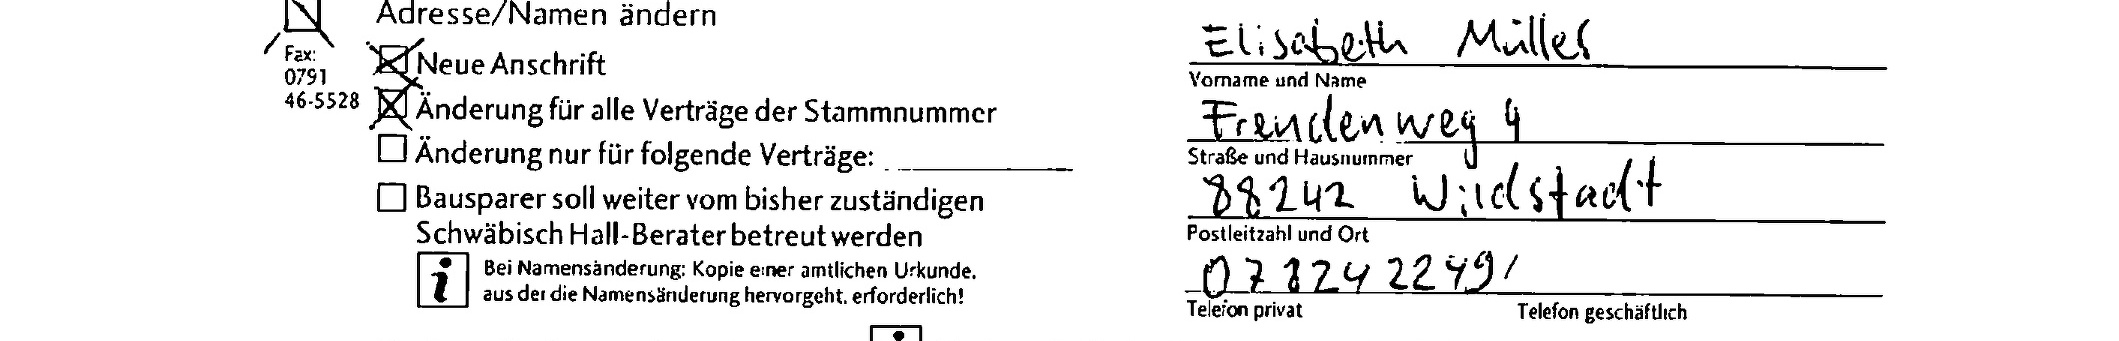 Adresse/Namen ändern
Fax:
0791
46-5528
Neue Anschrift
Änderung für alle Verträge der Stammnummer
Änderung nur für folgende Verträge:
Bausparer soll weiter vom bisher zuständigen
Schwäbisch Hall-Berater betreut werden
i Bei Namensänderung: Kopie einer amtlichen Urkunde,
aus der die Namensänderung hervorgeht, erforderlich!
Elisabeth Müller
Vorname und Name
Freudenweg 4
Straße und Hausnummer
88242 Wildstadt
Postleitzahl und Ort
Telefon privat
Telefon geschäftlich